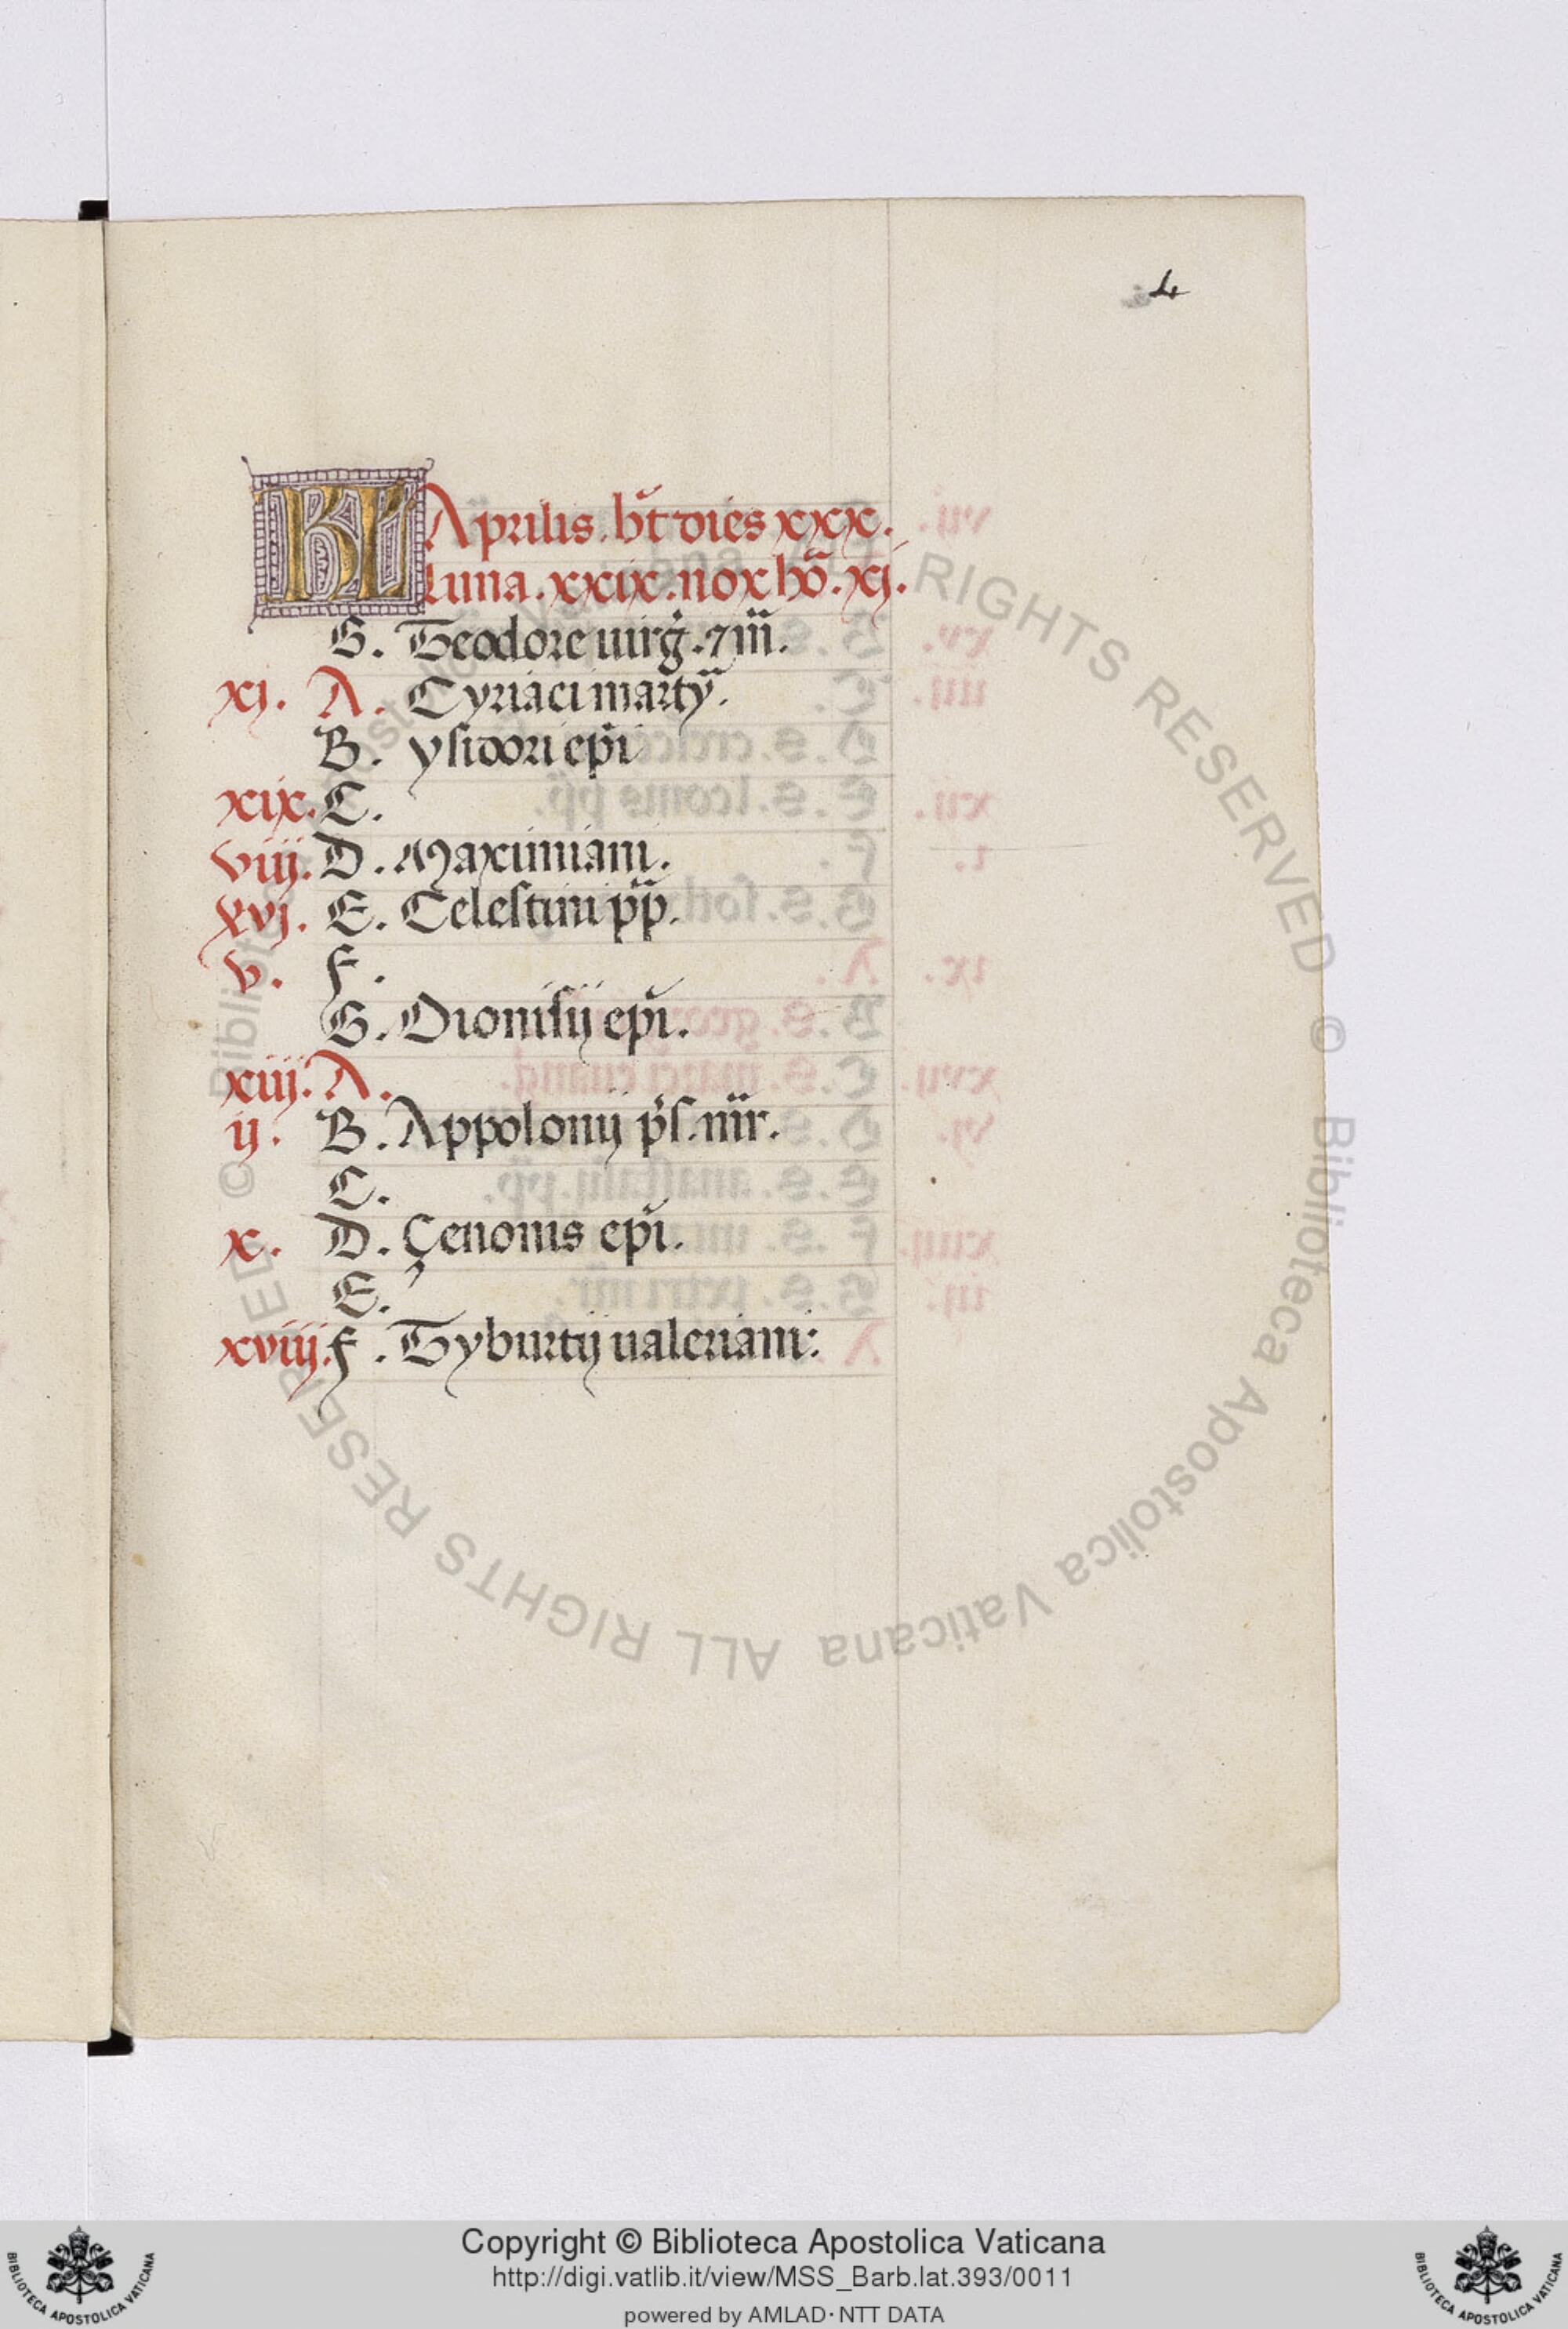 4
KL Aprilis. ht̄ dies xxx.
Luna. xxix. nox ho᷒. xj.
G. Teodore uirg̃. ⁊ m̃.
xj. A. Cyriaci marty᷒.
B. ysidori ep̃i
xix. C.
viij. D. Maximiani.
xvj. E. Celestini pp̃.
v. F.
G. Dionisij ep̃i.
xiij. A.
ij. B. Appolonij p̃s. m̃r.
C.
x. D. Çenonis ep̃i.
E.
xviij. F. Tyburtij ualeriani:
© Biblioteca Apostolica Vaticana ALL RIGHTS RESERVED
Copyright © Biblioteca Apostolica Vaticana
http://digi.vatlib.it/view/MSS_Barb.lat.393/0011
powered by AMLAD·NTT DATA
BIBLIOTECA APOSTOLICA VATICANA
BIBLIOTECA APOSTOLICA VATICANA